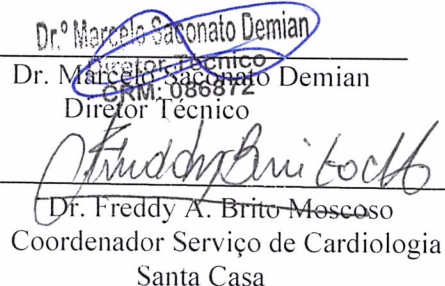 Dr.º Marcelo Saconato Demian
Diretor Técnico
CRM: 086872
Dr. Marcelo Saconato Demian
Diretor Técnico
Freddy Brito
Dr. Freddy A. Brito Moscoso
Coordenador Serviço de Cardiologia
Santa Casa